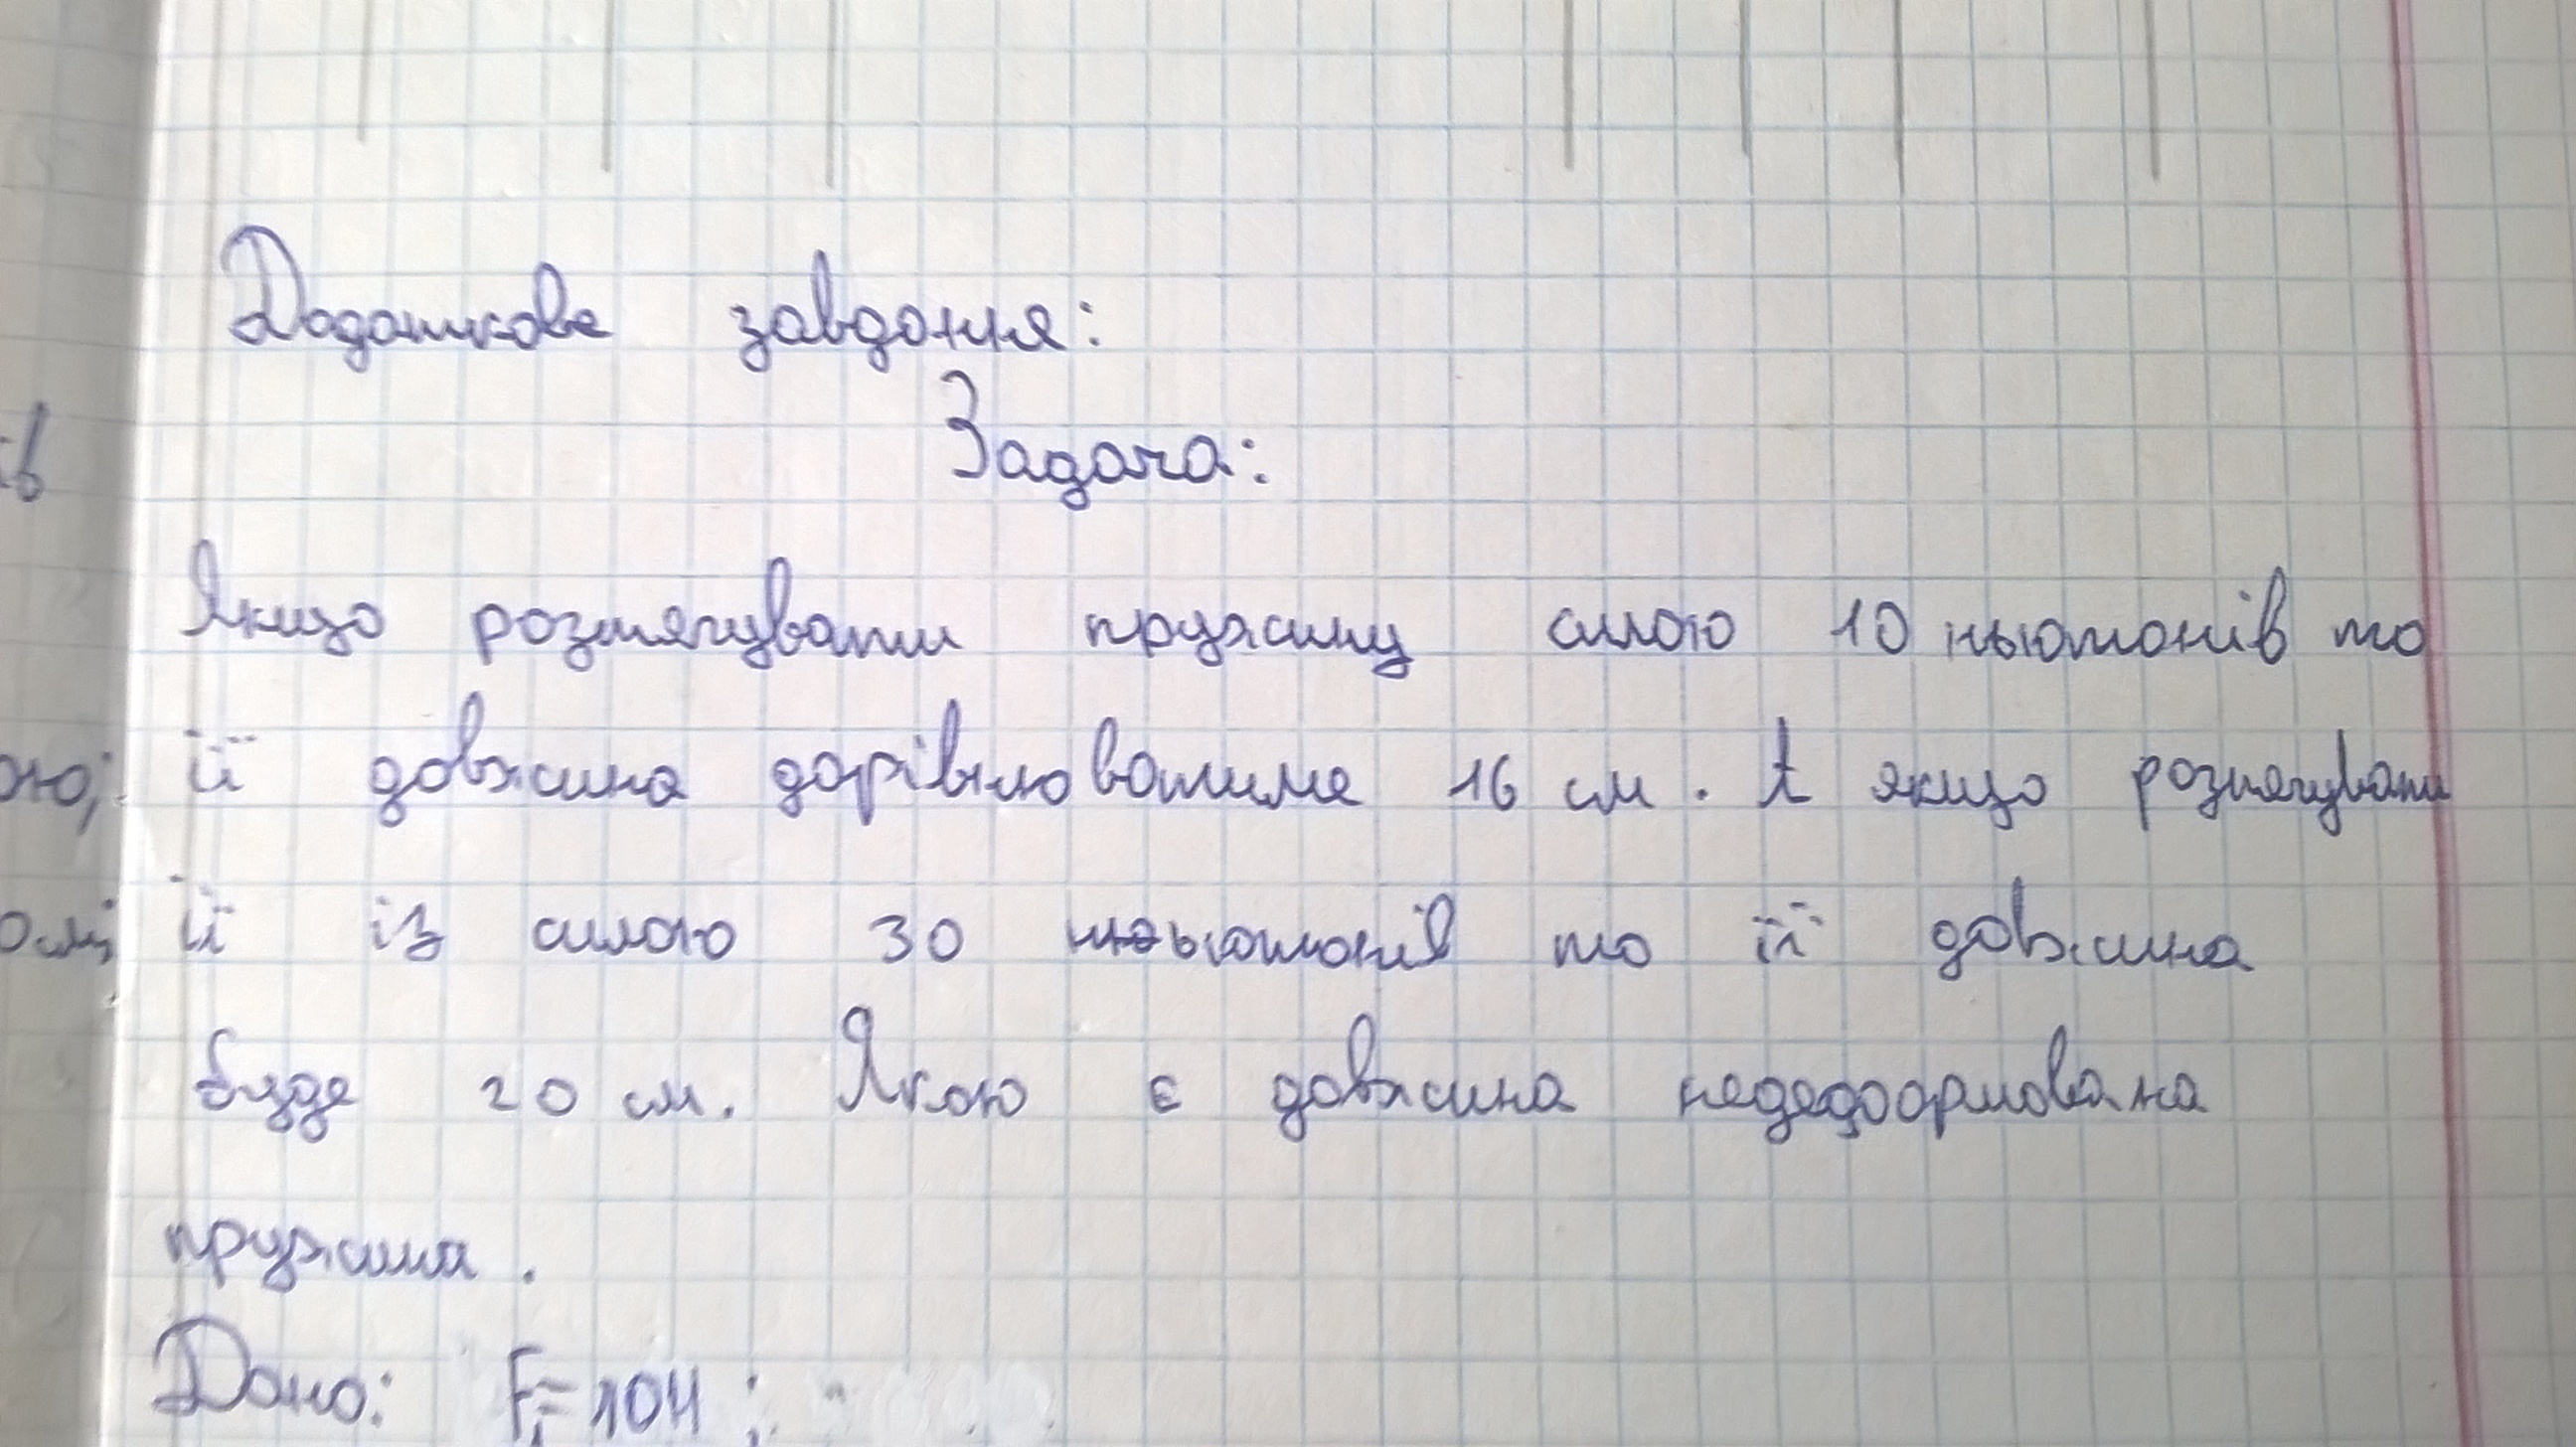 Додаткове завдання:
Задача:
Якщо розтягувати пружину силою 10 ньютонів то
її довжина дорівнюватиме 16 см. А якщо розтягувати
її із силою 30 ньютонів то її довжина
буде 20 см. Якою є довжина недедоормована
пружина.
Дано: F₁=10Н;
ів
ою;